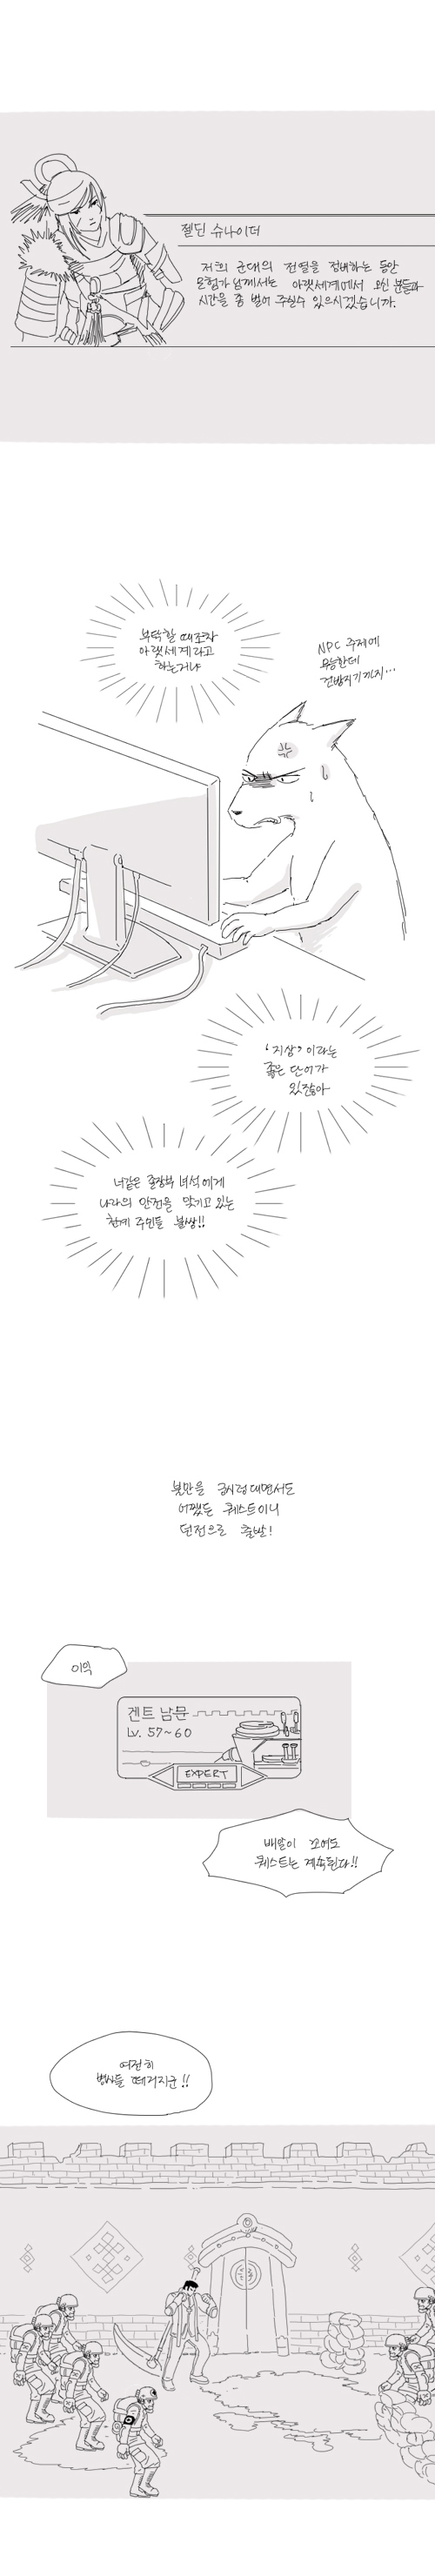 젤딘 슈나이더
저희 군대의 전열을 정비하는 동안
모험가님께서는 아랫세계에서 오신 분들과
시간을 좀 벌어 주실수 있으시겠습니까.
부탁할 때조차
아랫세계라고
하는거냐
NPC 주제에
무능한데
건방지기까지...
'지상'이라는
좋은 단어가
있잖아
너같은 졸장부 녀석에게
나라의 안전을 맞기고 있는
한계 주민들 불쌍!!
불만을 궁시렁대면서도
어쨌든 퀘스트이니
던전으로 출발!
이익
겐트 남문
Lv. 57~60
EXPERT
배알이 꼬여도
퀘스트는 계속된다!!
여전히
병사들 떼거지군!!